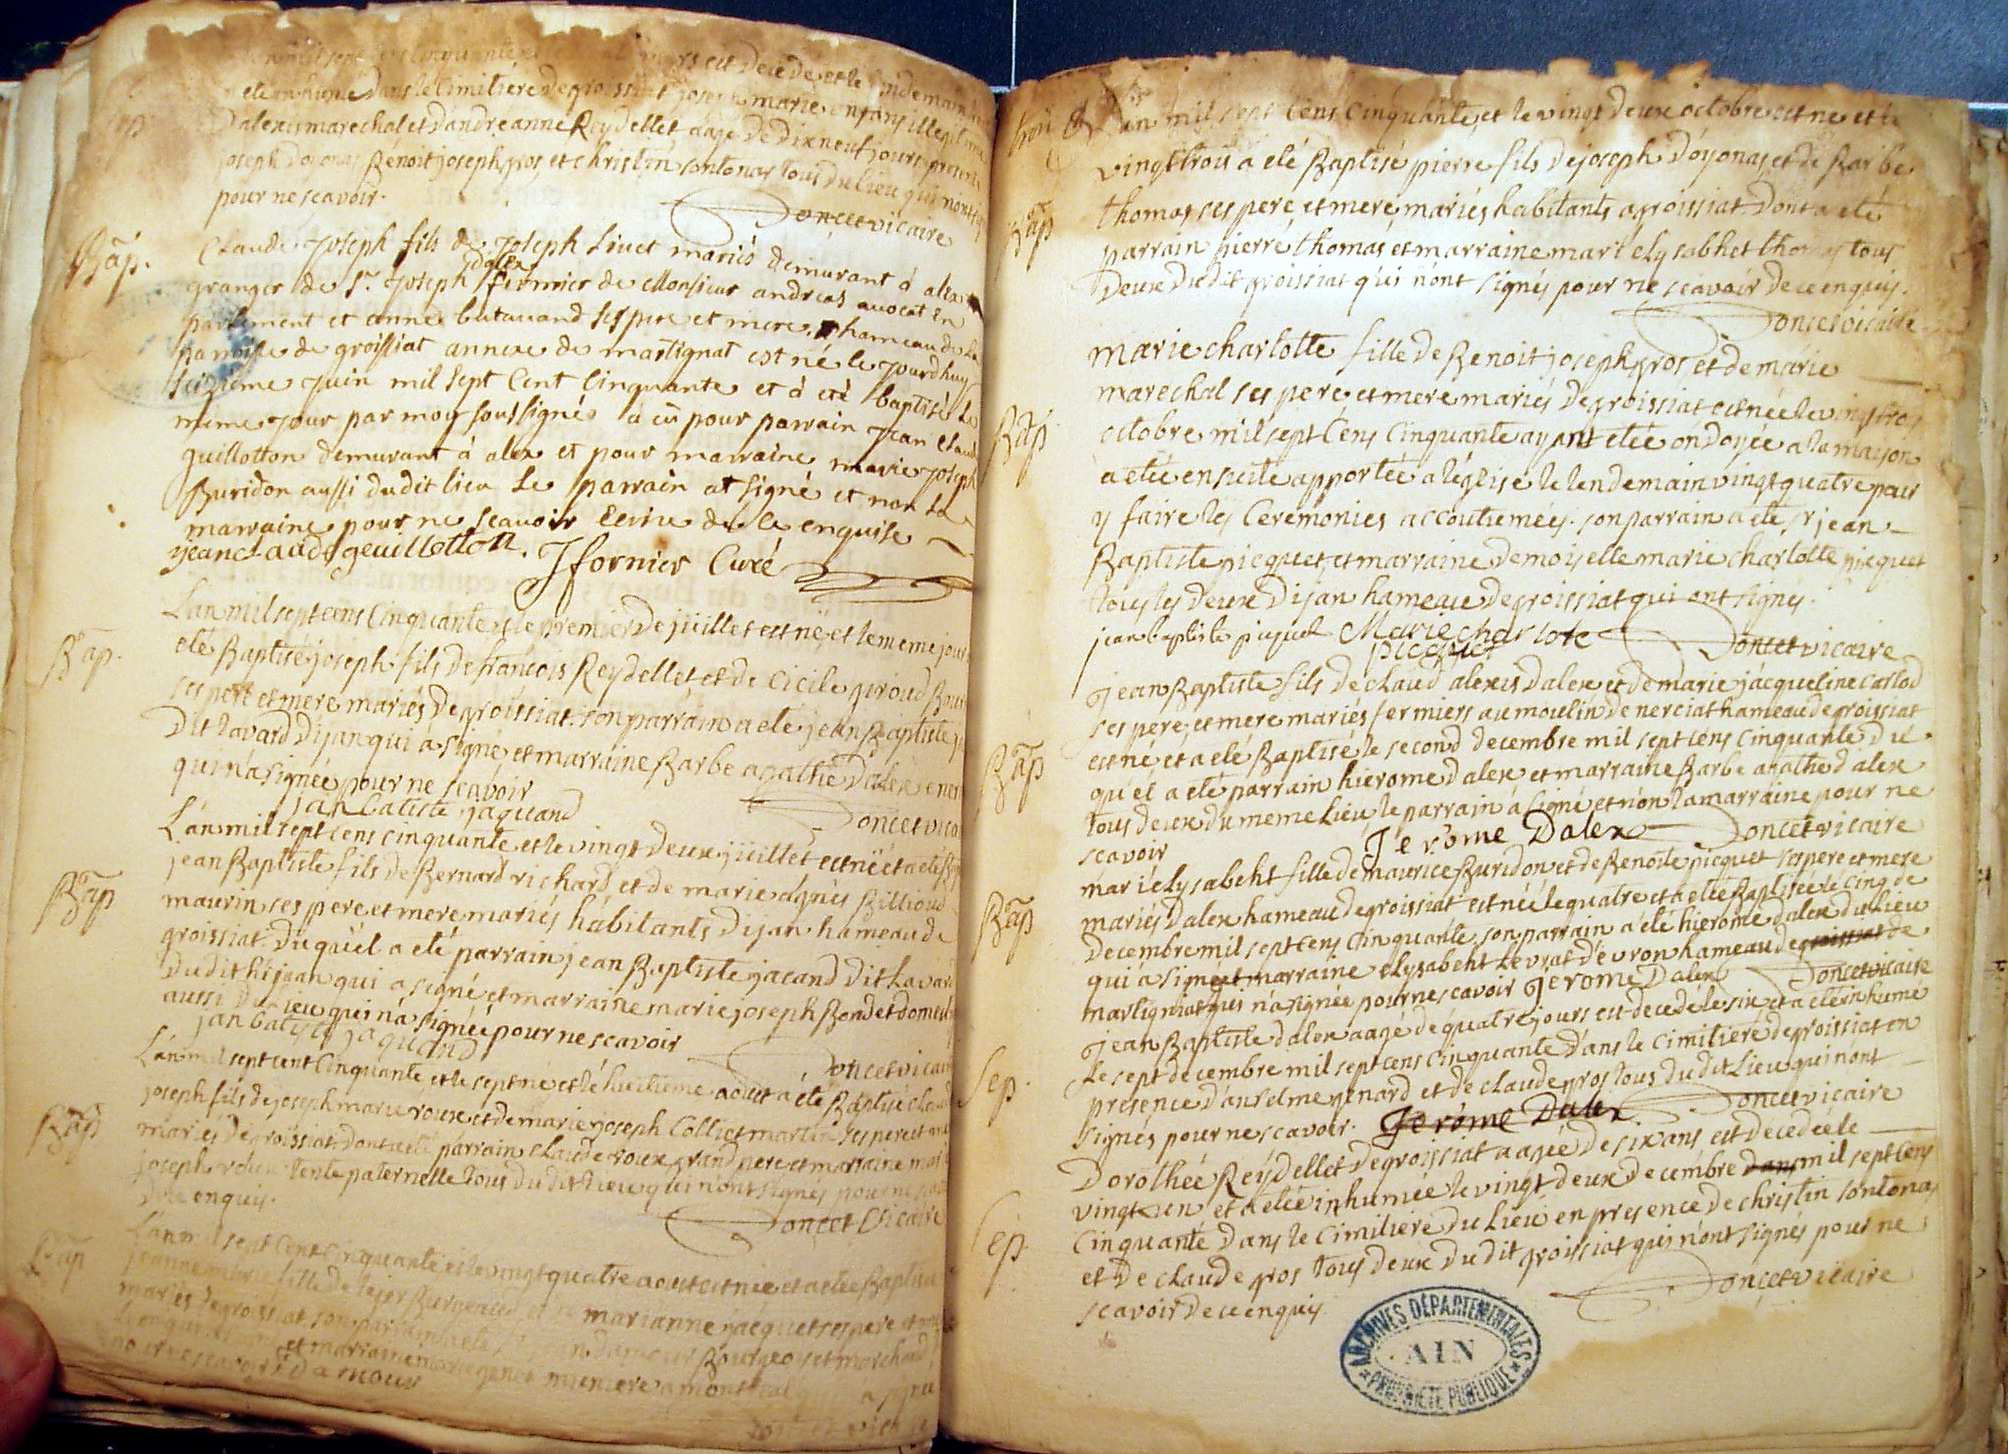 est decedé et le lendemain
eté inhumé dans le Cimitiere de groissiat joseph marie enfans illegitime
Dalexis marechal et dandreanne Reydellet aagé de dixneuf jours presents
joseph doyonas Benoit joseph gros et christin sontonas tous du lieu qui nont
pour ne scavoir.
Doncet vicaire
Bap.
Claude joseph fils de joseph Livet mariés demurant à alex
granger de Sr. joseph dalex fermier de Monsieur andreas avocat en
parlement et anne butavand ses pere et mere hameau de la
paroisse de groissiat annexe de martignat est né le jourdhuy
seizieme juin mil sept Cent Cinquante et à eté baptisé le
meme jour par moy soussigné à eü pour parrain jean Claude
guillotton demurant à alex et pour marraine marie joseph
Buridon aussi dudit lieu Le parrain at signé et non la
marraine pour ne scavoir Ecrire de ce enquise
jean claude geuillotton. J fornier Curé
Bap.
Lan mil sept cens Cinquante et le premier de jüillet est né et le meme jour
eté Baptisé joseph fils de francois Reydellet et de Cicile giroud
ses pere et mere mariés de groissiat. son parrain a eté jean Baptiste
dit Lavard Dijan qui à signé et marraine Barbe agathe Dalex
qui na signée pour ne scavoir
jan batiste jaquand
Doncet vicaire
Bap
Lan mil sept cens cinquante et le vingt deux jüillet est né et a eté
jean Baptiste fils de Bernard richard et de marie agnès Billioud
maurin ses pere et mere mariés habitants Dijan hameau de
groissiat. Duquel a eté parrain jean Baptiste jacand dit Lavard
dudit hijean qui a signé et marraine marie joseph Bondet
aussi du lieu qui na signée pour ne scavoir
jan batiste jaquand
Doncet vicaire
Bap
Lan mil sept cent Cinquante et le sept né et le huitieme aout a eté Baptisé claude
joseph fils de joseph marie roux et de marie joseph Colliet martin ses pere et mere
mariés de groissiat. dont a eté parrain claude roux grand pere et marraine
joseph roux tente paternelle tous du dit lieu qui nont signés pour ne
De ce enquis.
Doncet Vicaire
Bap
Lan mil sept Cent Cinquante et le vingt quatre aout est née et a eté Baptisée
jeanne marie fille de et marianne jacquet ses pere et
mariés de groissiat son parrain a eté Bourgeois et marchand
et marraine
pour ne scavoir
Lan mil sept Cens Cinquante et le vingt deux octobre est né et le
vingt trois a eté Baptisé pierre fils de joseph Doyonas et de Barbe
Bap
thomas ses pere et mere mariés habitants a groissiat. Dont a eté
parrain pierre thomas et marraine marie elysabhet thomas tous
Deux dudit groissiat qui n'ont signés pour ne scavoir de ce enquis.
Doncet vicaire
marie charlotte fille de Benoit joseph gros et de marie
marechal ses pere et mere mariés de groissiat est née le vingt trois
Bap
octobre mil sept Cens Cinquante ayant eteé ondoyée a la maison
a eteé ensuite apportée a l'église le lendemain vingt quatre pour
y faire les Ceremonies accoutumeés. son parrain a eté sr jean
Baptiste picquet et marraine demoiselle marie charlotte picquet
tous les deux Dijan hameau de groissiat qui ont signés.
jean baptiste picquet Marie charlote
picquet
Doncet vicaire
jean Baptiste fils de Claud alexis dalex et de marie jacqueline Carlod
ses pere et mere mariés fermiers au moulin de nerciat hameau de groissiat
Bap
est né et a eté Baptisé le second decembre mil sept cens cinquante du
quel a eté parrain hierome dalex et marraine Barbe agathe dalex
tous deux du meme Lieu, le parrain à signé et non la marraine pour ne
scavoir
Jerome Dalex Doncet vicaire
marie elysabeht fille de maurice Buridon et de Benoite picquet ses pere et mere
Bap
mariés Dalex hameau de groissiat est née le quatre et a eteé Baptisée le Cinq de
decembre mil sept cens Cinquante, son parrain a eté hierome dalex du Lieu
qui à signé et marraine elysabeht Levrat dévron hameau de groissiat de
martigniat qui na signée pour ne scavoir Jerome Dalex Doncet vicaire
Sep.
jean Baptiste dalex aagé de quatre jours est decedé le six et a eté inhumé
Le sept decembre mil sept cens cinquante dans le Cimitiere de groissiat en
presence danselme genard et de claude gros tous du dit Lieu qui nont
signés pour ne scavoir. Jerome Dalex Doncet vicaire
Sep.
Dorothée Reydellet de groissiat aagée de six ans est decedeé le
vingt un et a eteé inhumée le vingt deux decembre dans mil sept Cens
Cinquante dans le Cimitiere du Lieu en presence de christin sontonas
et de claude gros tous deux du dit groissiat qui nont signés pour ne
scavoir de ce enquis
Doncet vicaire
ARCHIVES DÉPARTEMENTALES
AIN
PROPRIÉTÉ PUBLIQUE